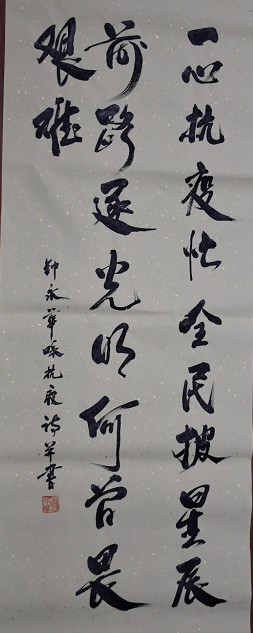 一心抗疫忙全民披星辰
前路逐光明何曾畏
艰难
钟永华咏抗疫诗并书